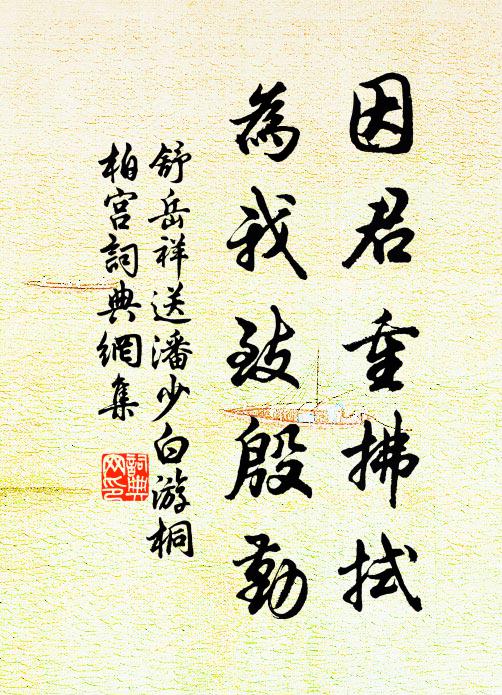 因君重拂拭
為我致殷勤
舒岳祥送潘少白游桐
柏宫詞典網集
詞典網印